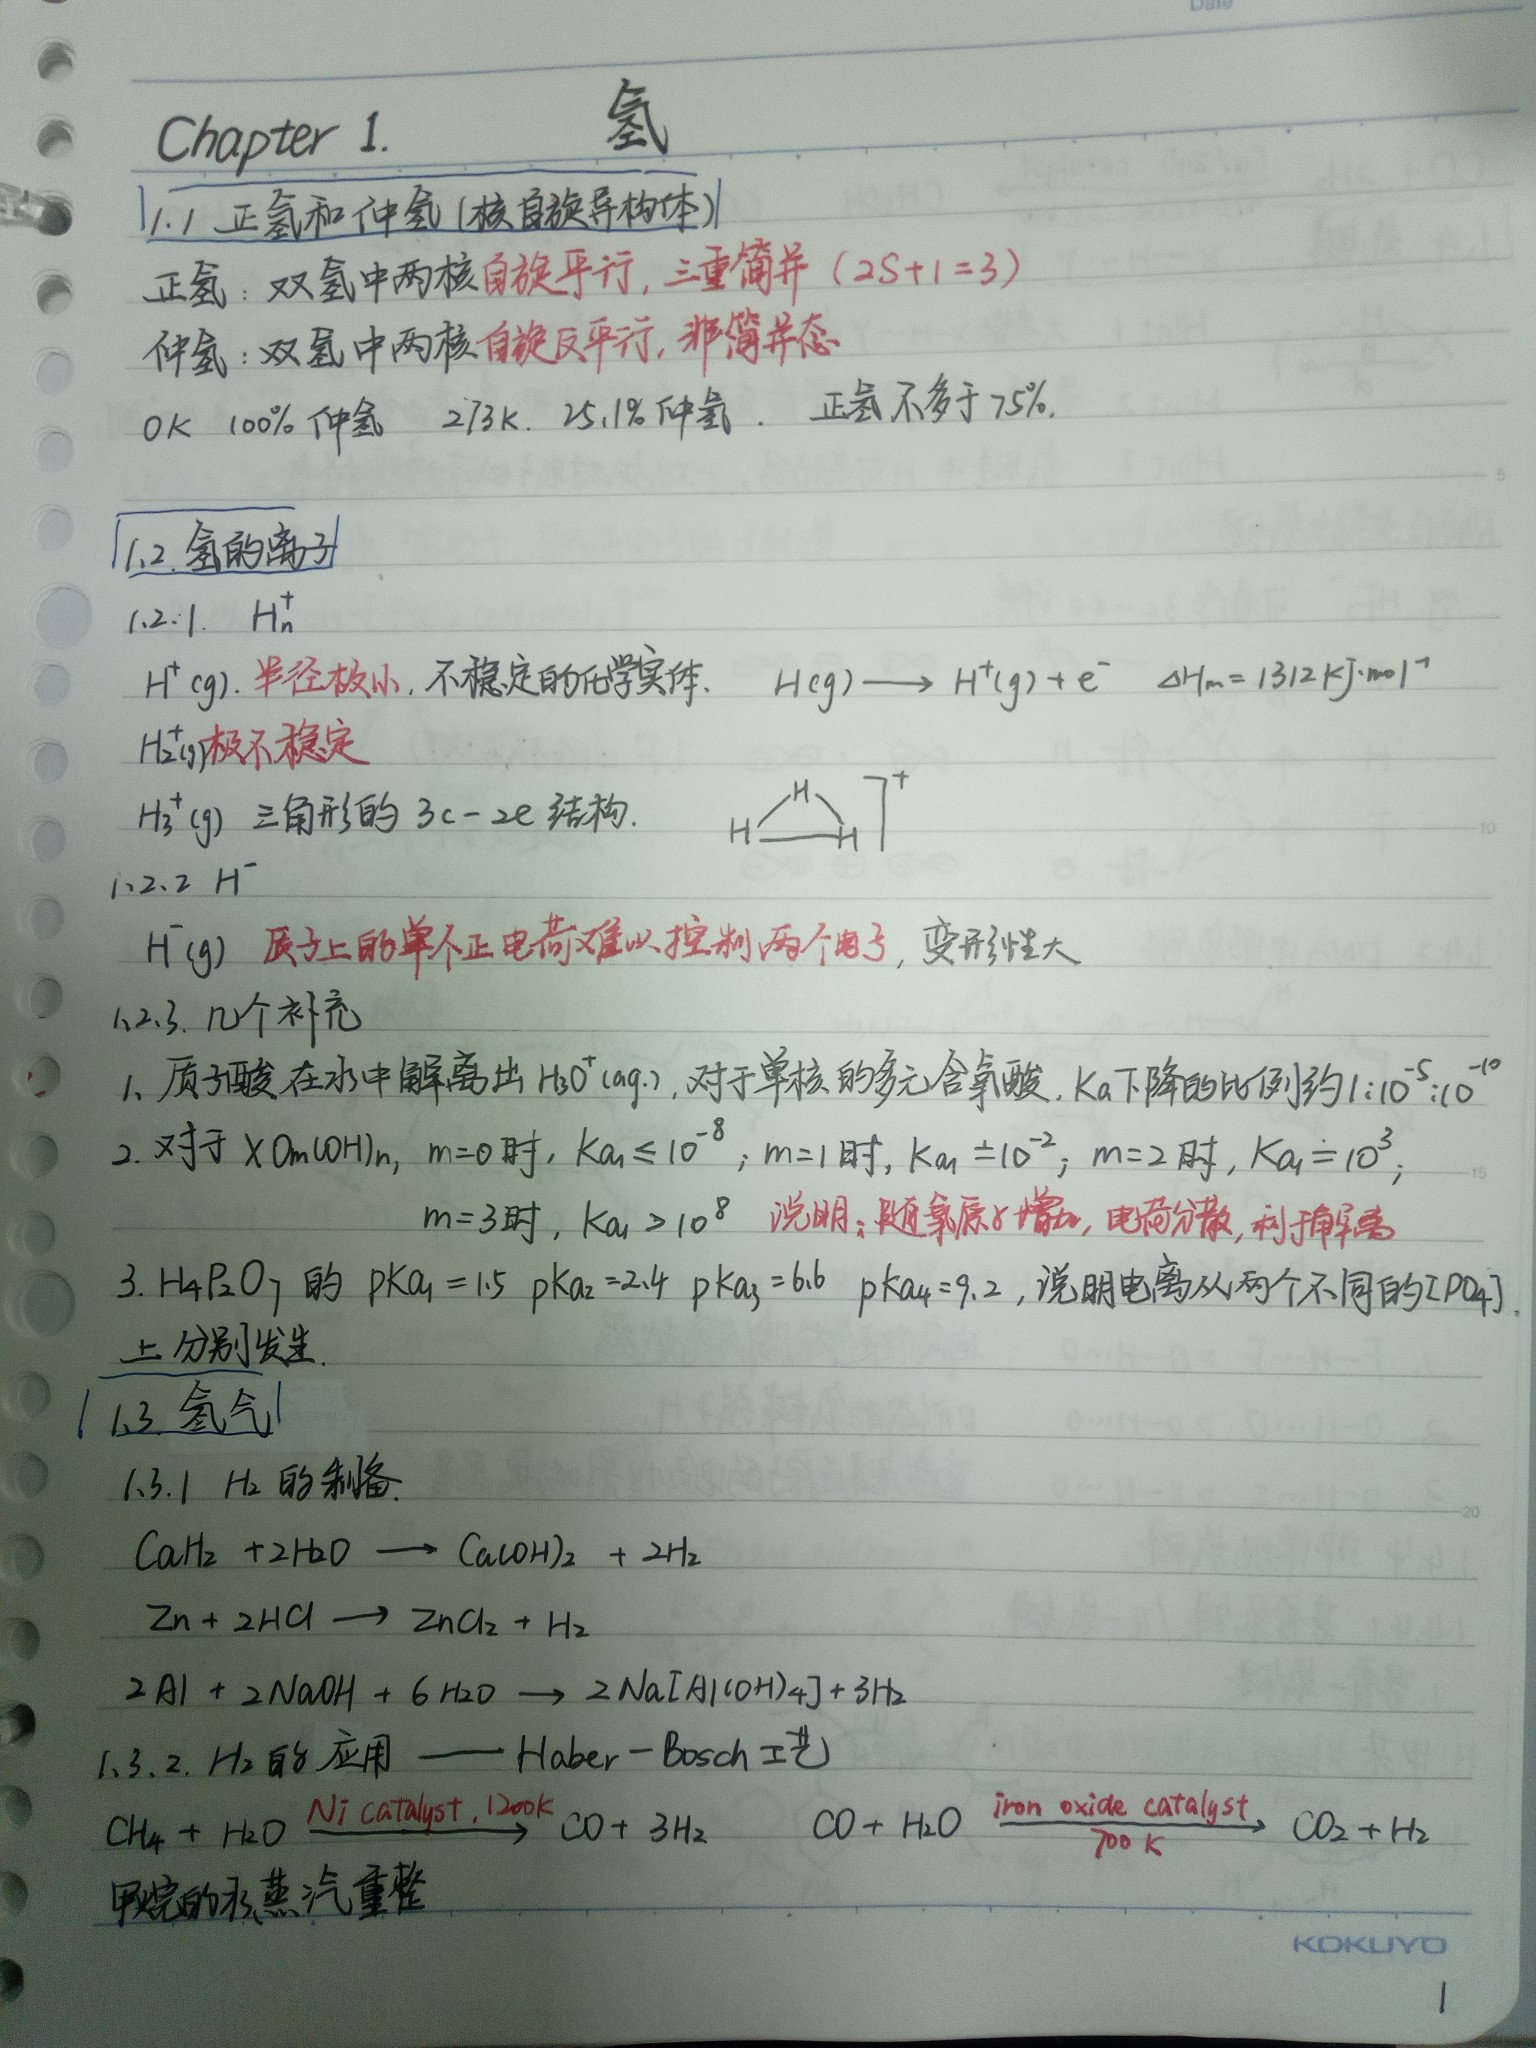 Date
Chapter 1. 氢
1.1 正氢和仲氢(核自旋异构体)
正氢：双氢中两核自旋平行，三重简并（2S+1=3）
仲氢：双氢中两核自旋反平行，非简并态
0K 100%仲氢 273K. 25.1%仲氢. 正氢不多于75%.
1.2. 氢的离子
1.2.1. Hₙ⁺
H⁺(g). 半径极小，不稳定的化学实体. H(g) → H⁺(g) + e⁻ ΔHm = 1312 kJ·mol⁻¹
H₂⁺(g)极不稳定
H₃⁺(g) 三角形的 3c-2e 结构.
H H H ]⁺
1.2.2 H⁻
H⁻(g) 质子上的单个正电荷难以控制两个电子，变形性大
1.2.3. 几个补充
1. 质子酸在水中解离出 H₃O⁺(aq.)，对于单核的多元含氧酸，Ka下降的比例约1:10⁻⁵:10⁻¹⁰
2. 对于 XOm(OH)n, m=0时，Ka₁ ≤ 10⁻⁸；m=1时，Ka₁ ≐ 10⁻²；m=2时，Ka₁ ≐ 10³；
m=3时，Ka₁ > 10⁸ 说明：随氧原子增加，电荷分散，利于解离
3. H₄P₂O₇ 的 pKa₁=1.5 pKa₂=2.4 pKa₃=6.6 pKa₄=9.2，说明电离从两个不同的[PO₄]
上分别发生.
1.3. 氢气
1.3.1 H₂的制备.
CaH₂ + 2H₂O → Ca(OH)₂ + 2H₂
Zn + 2HCl → ZnCl₂ + H₂
2Al + 2NaOH + 6H₂O → 2Na[Al(OH)₄] + 3H₂
1.3.2. H₂的应用 —— Haber-Bosch工艺
CH₄ + H₂O Ni catalyst, 1200K → CO + 3H₂ CO + H₂O iron oxide catalyst 700 K → CO₂ + H₂
甲烷的水蒸汽重整
KOKUYO
1
5
10
15
20